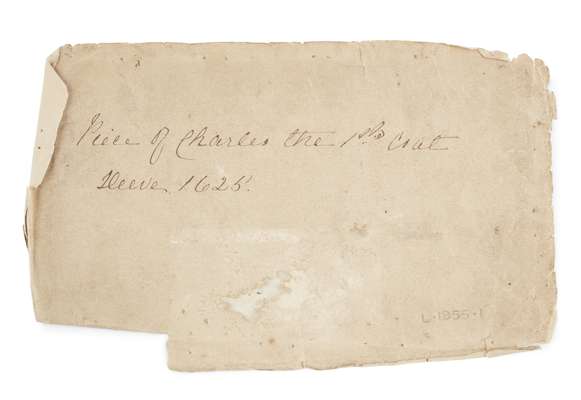 Piece of Charles the 1sts Coat
Sleeve 1625.
L-1955-1